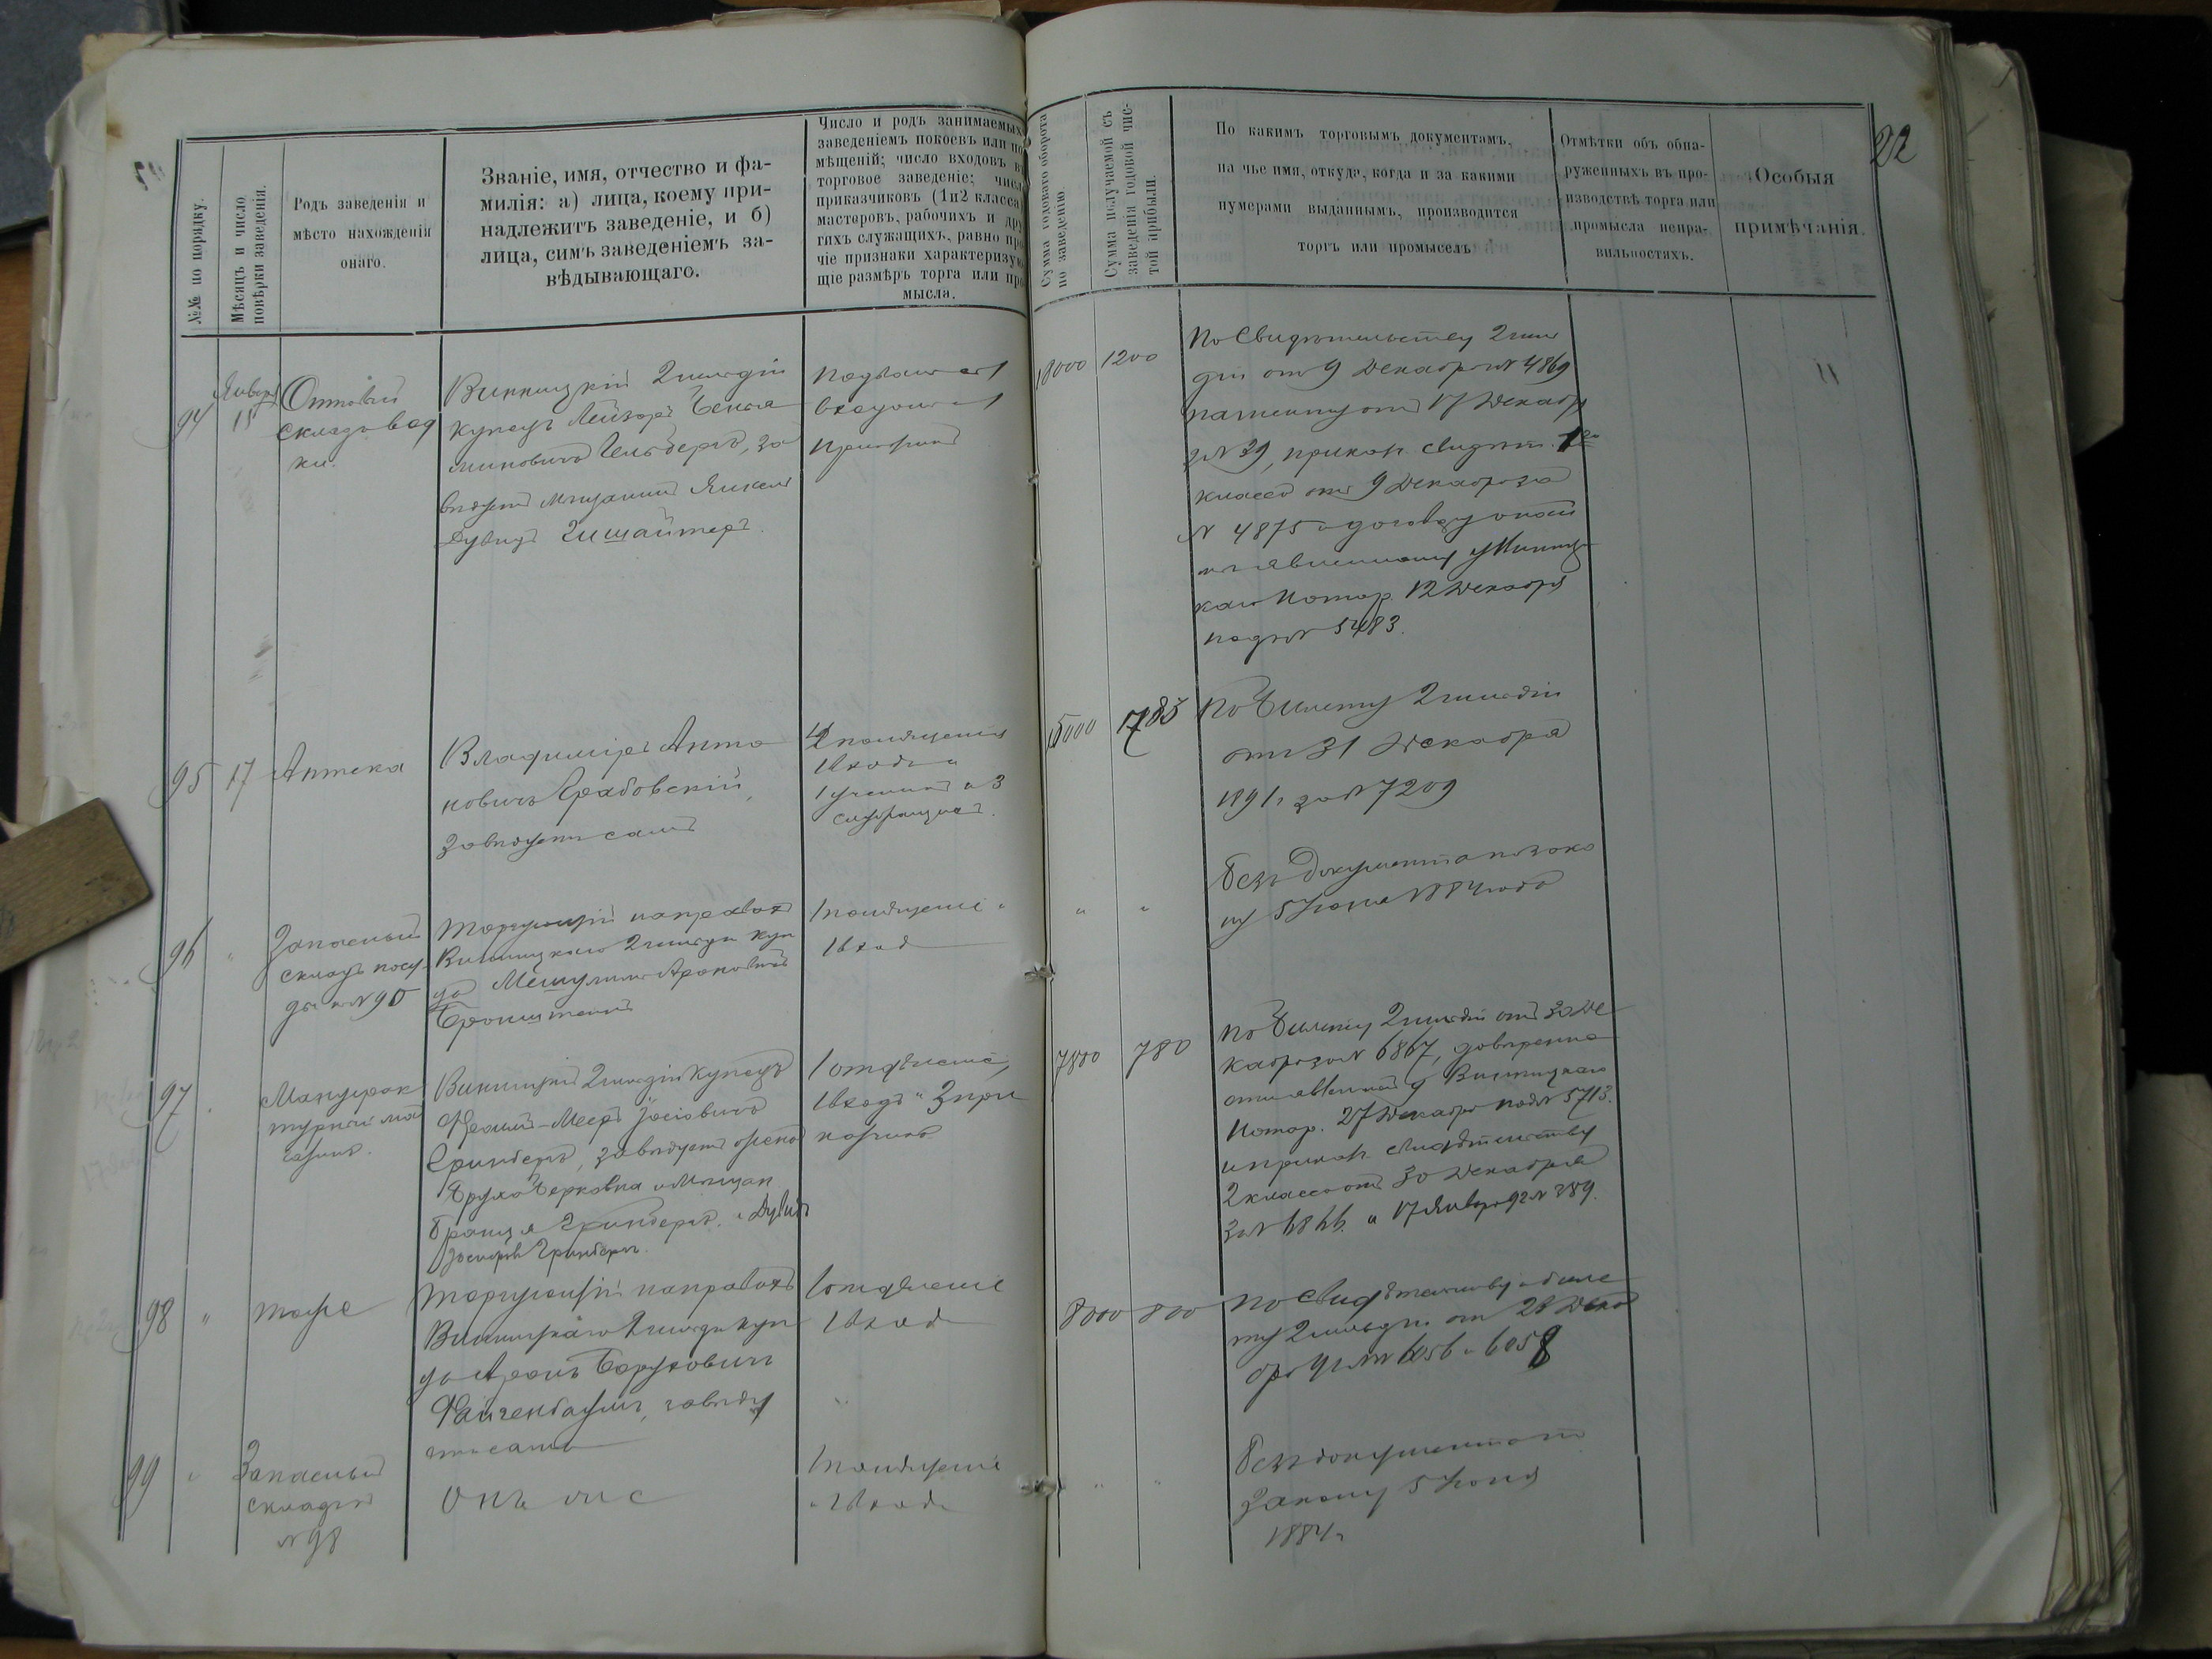 22
№№ по порядку.
Мѣсяцъ и число
повѣрки заведенія.
Родъ заведенія и
мѣсто нахожденія
онаго.
Званіе, имя, отчество и фа-
милія: а) лица, коему при-
надлежитъ заведеніе, и б)
лица, симъ заведеніемъ за-
вѣдывающаго.
Число и родъ занимаемыхъ
заведеніемъ покоевъ или по
мѣщеній; число входовъ въ
торговое заведеніе; число
приказчиковъ (1и2 класса)
мастеровъ, рабочихъ и дру
гихъ служащихъ, равно про
чіе признаки характеризую
щіе размѣръ торга или про
мысла.
Сумма годоваго оборота
по заведенію.
Сумма получаемой съ
заведенія годовой чис-
той прибыли.
По какимъ торговымъ документамъ,
на чье имя, откуда, когда и за какими
нумерами выданнымъ, производится
торгъ или промыселъ
Отмѣтки объ обна-
руженныхъ въ про-
изводствѣ торга или
промысла непра-
вильностяхъ.
Особыя
примѣчанія.
94
Январ
15
Оптовый
складъ вод
ки.
Винницкій 2 гильдіи
купецъ Лейзоръ Бенья
миновичъ Гельбергъ, за
вѣдуетъ мѣщанинъ Янкель
Дувидъ
1
1
18000
1200
По Свидѣтельству 2 гиль
діи отъ 9 Декабря № 4869
отъ 17 Декабр
№ 39, приказч. свидѣт. 1го
класса отъ 9 Декабря за
№ 4875 и договору
Нотар. 12 Декабря
подъ № 5483.
95
17
Аптека
Владиміръ Анто
новичъ Грабовскій,
завѣдуетъ самъ
помѣщенія
1 входъ и
1 ученикъ и 3
15000
По билету 2 гильдіи
отъ 31 Декабря
1891 г за № 7209
96
"
Запасный
складъ посу-
ды к № 90
Торгующій на правахъ
Винницкаго 2 гильдіи куп
ца Мешулимъ Ароновичъ
Бронштейнъ
1 помѣщеніе "
1 вход
"
"
Безъ документа по зако
ну 5 Іюня 1884 года
97
Мануфак
турный ма
газинъ.
Винницкій 2 гильдіи купецъ
Фроимъ-Мееръ Іосіовичъ
Гринбергъ, завѣдуетъ жена
Беркова и мѣщан
Гринбергъ. и Дувидъ
Гринбергъ.
1 отдѣленіе,
1 входъ и 3 при
казчика
7800
780
По билету 2 гильдіи отъ 30 Де
кабря за № 6867, довѣренно
сти явленной у Винницкаго
Нотар. 27 Декабря под № 5713.
и приказч. свидѣтельству
2 класса отъ 30 Декабря
за № 6866. и 17 Января 92 № 389.
98
"
тоже
Торгующій на правахъ
Винницкаго 2 гильдіи куп
ца Аронъ Боруховичъ
Файгенбаумъ, завѣду
етъ самъ
1 отдѣленіе
1 входъ
8000
800
По свидѣтельству и биле
ту 2 гильдіи от 28 Дека
бря 91 г №№ 6056 и 6058
99
"
Запасный
складъ к
№ 98
Онъ же
1 помѣщеніе
и 1 входъ
"
"
Безъ документа по
закону 5 Іюня
1884 г